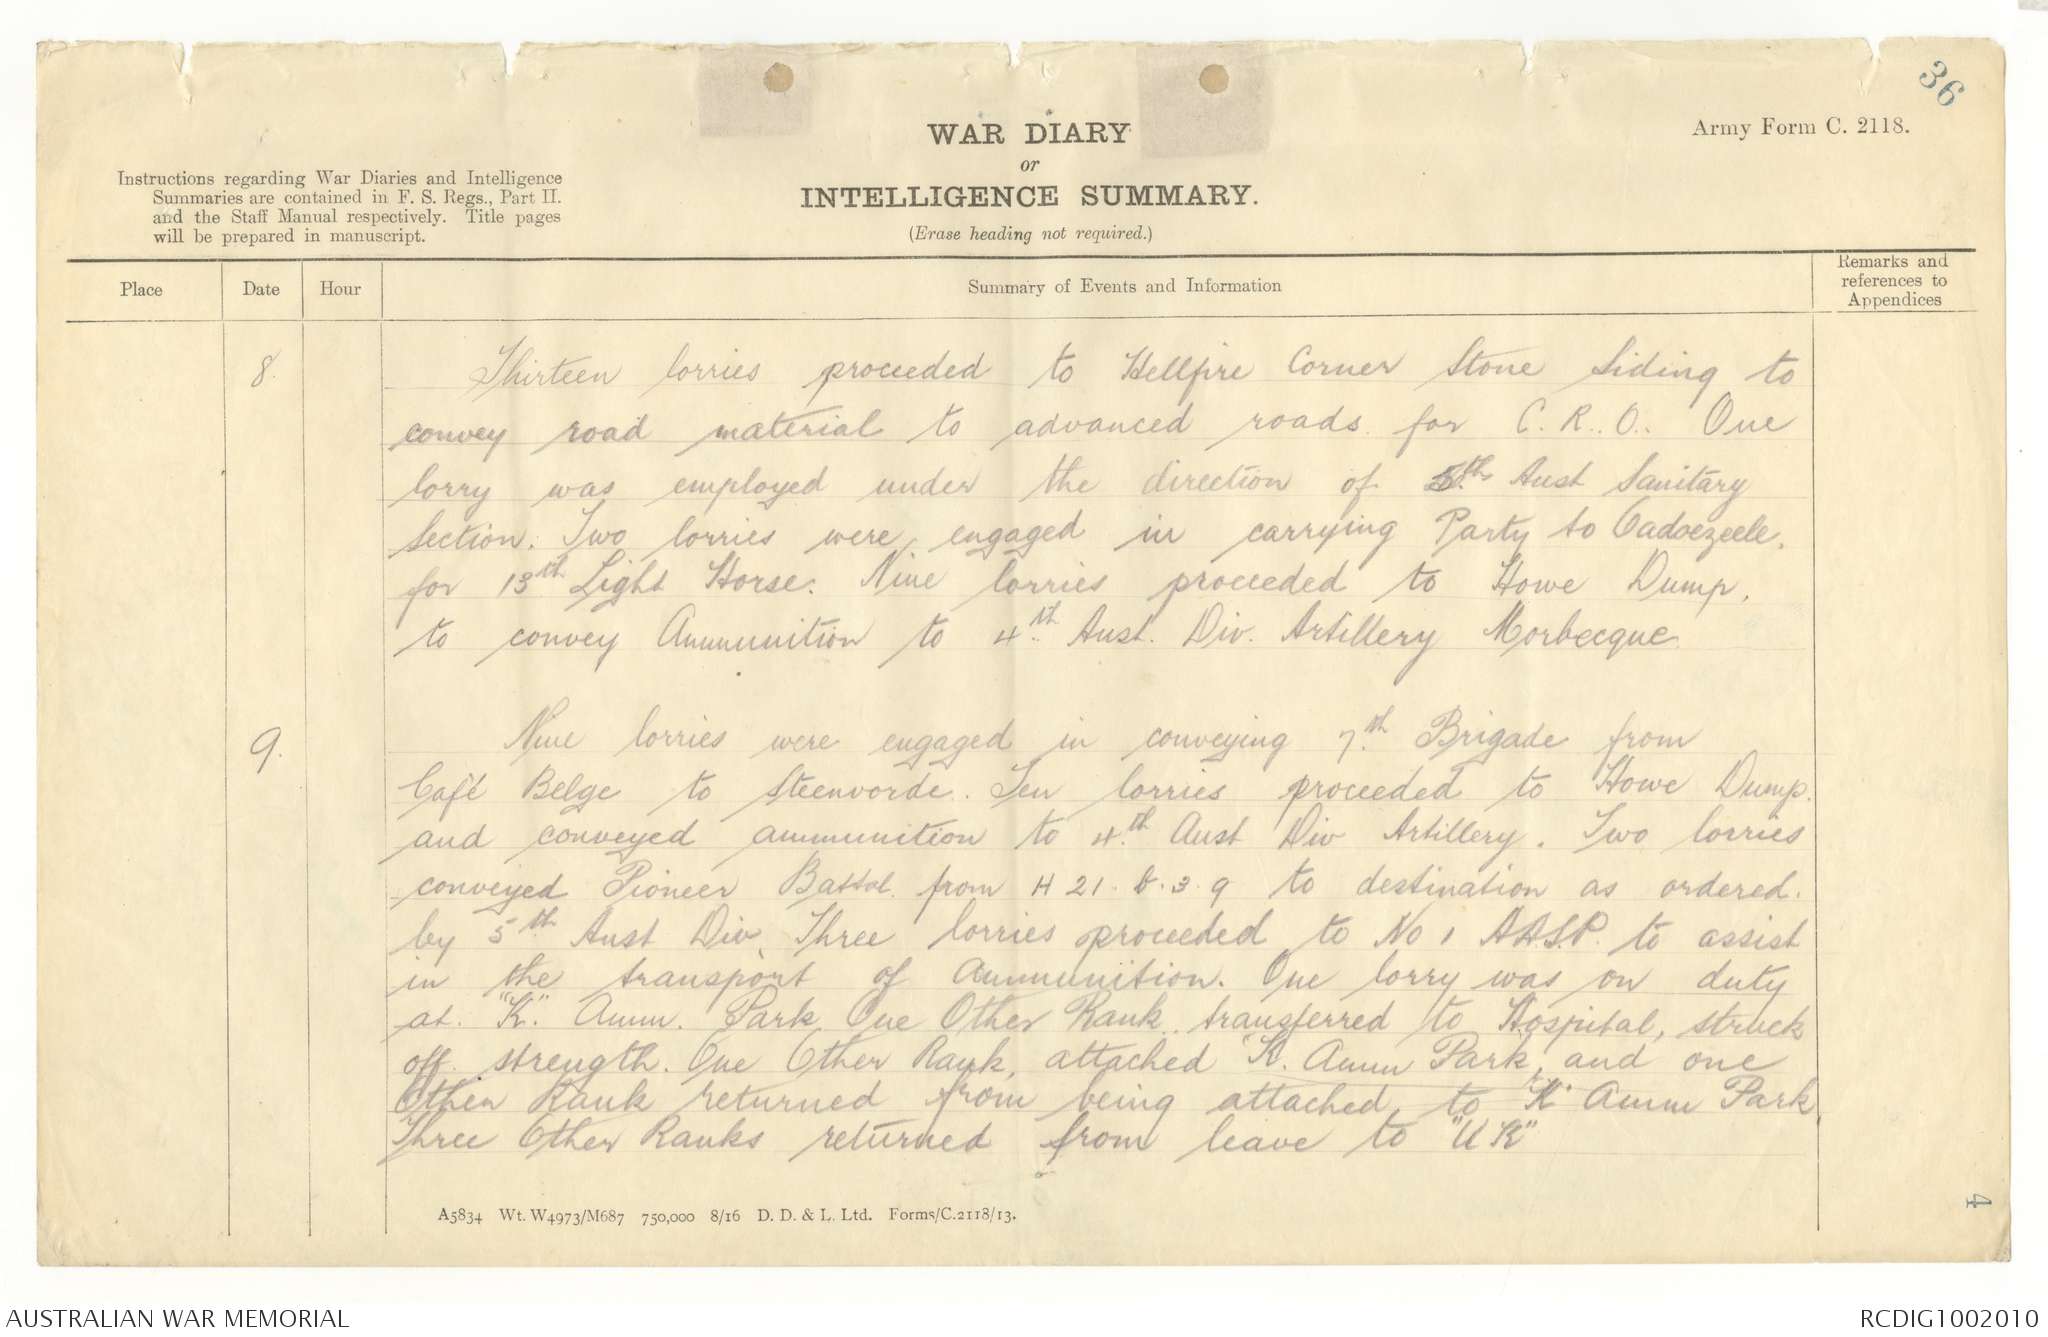 36
Army Form C. 2118.
WAR DIARY
or
INTELLIGENCE SUMMARY.
(Erase heading not required.)
Instructions regarding War Diaries and Intelligence
Summaries are contained in F. S. Regs., Part II.
and the Staff Manual respectively. Title pages
will be prepared in manuscript.
Place
Date
Hour
Summary of Events and Information
Remarks and
references to
Appendices
8.
Thirteen lorries proceeded to Hellfire Corner Stone Siding to
convey road material to advanced roads for C. R. O. One
lorry was employed under the direction of 5th Aust Sanitary
Section. Two lorries were engaged in carrying Party to Oadoezeele.
for 13th Light Horse. Nine lorries proceeded to Howe Dump,
to convey Ammunition to 4th Aust. Div. Artillery Morbecque
9.
Nine lorries were engaged in conveying 7th Brigade from
Café Belge to Steenvorde. Ten lorries proceeded to Howe Dump.
and conveyed ammunition to 4th Aust Div Artillery. Two lorries
conveyed Pioneer Battal. from H 21. b. 3. 9 to destination as ordered.
by 5th Aust Div. Three lorries proceeded to No 1 A.A.S.P. to assist
in the transport of Ammunition. One lorry was on duty
at. "K". Amm. Park One Other Rank transferred to Hospital, struck
off strength. One Other Rank, attached "K. Amm Park, and one
Other Rank returned from being attached to "K" Amm Park
Three Other Ranks returned from leave to "U K"
4
A5834 Wt. W4973/M687 750,000 8/16 D. D. & L. Ltd. Forms/C.2118/13.
AUSTRALIAN WAR MEMORIAL
RCDIG1002010